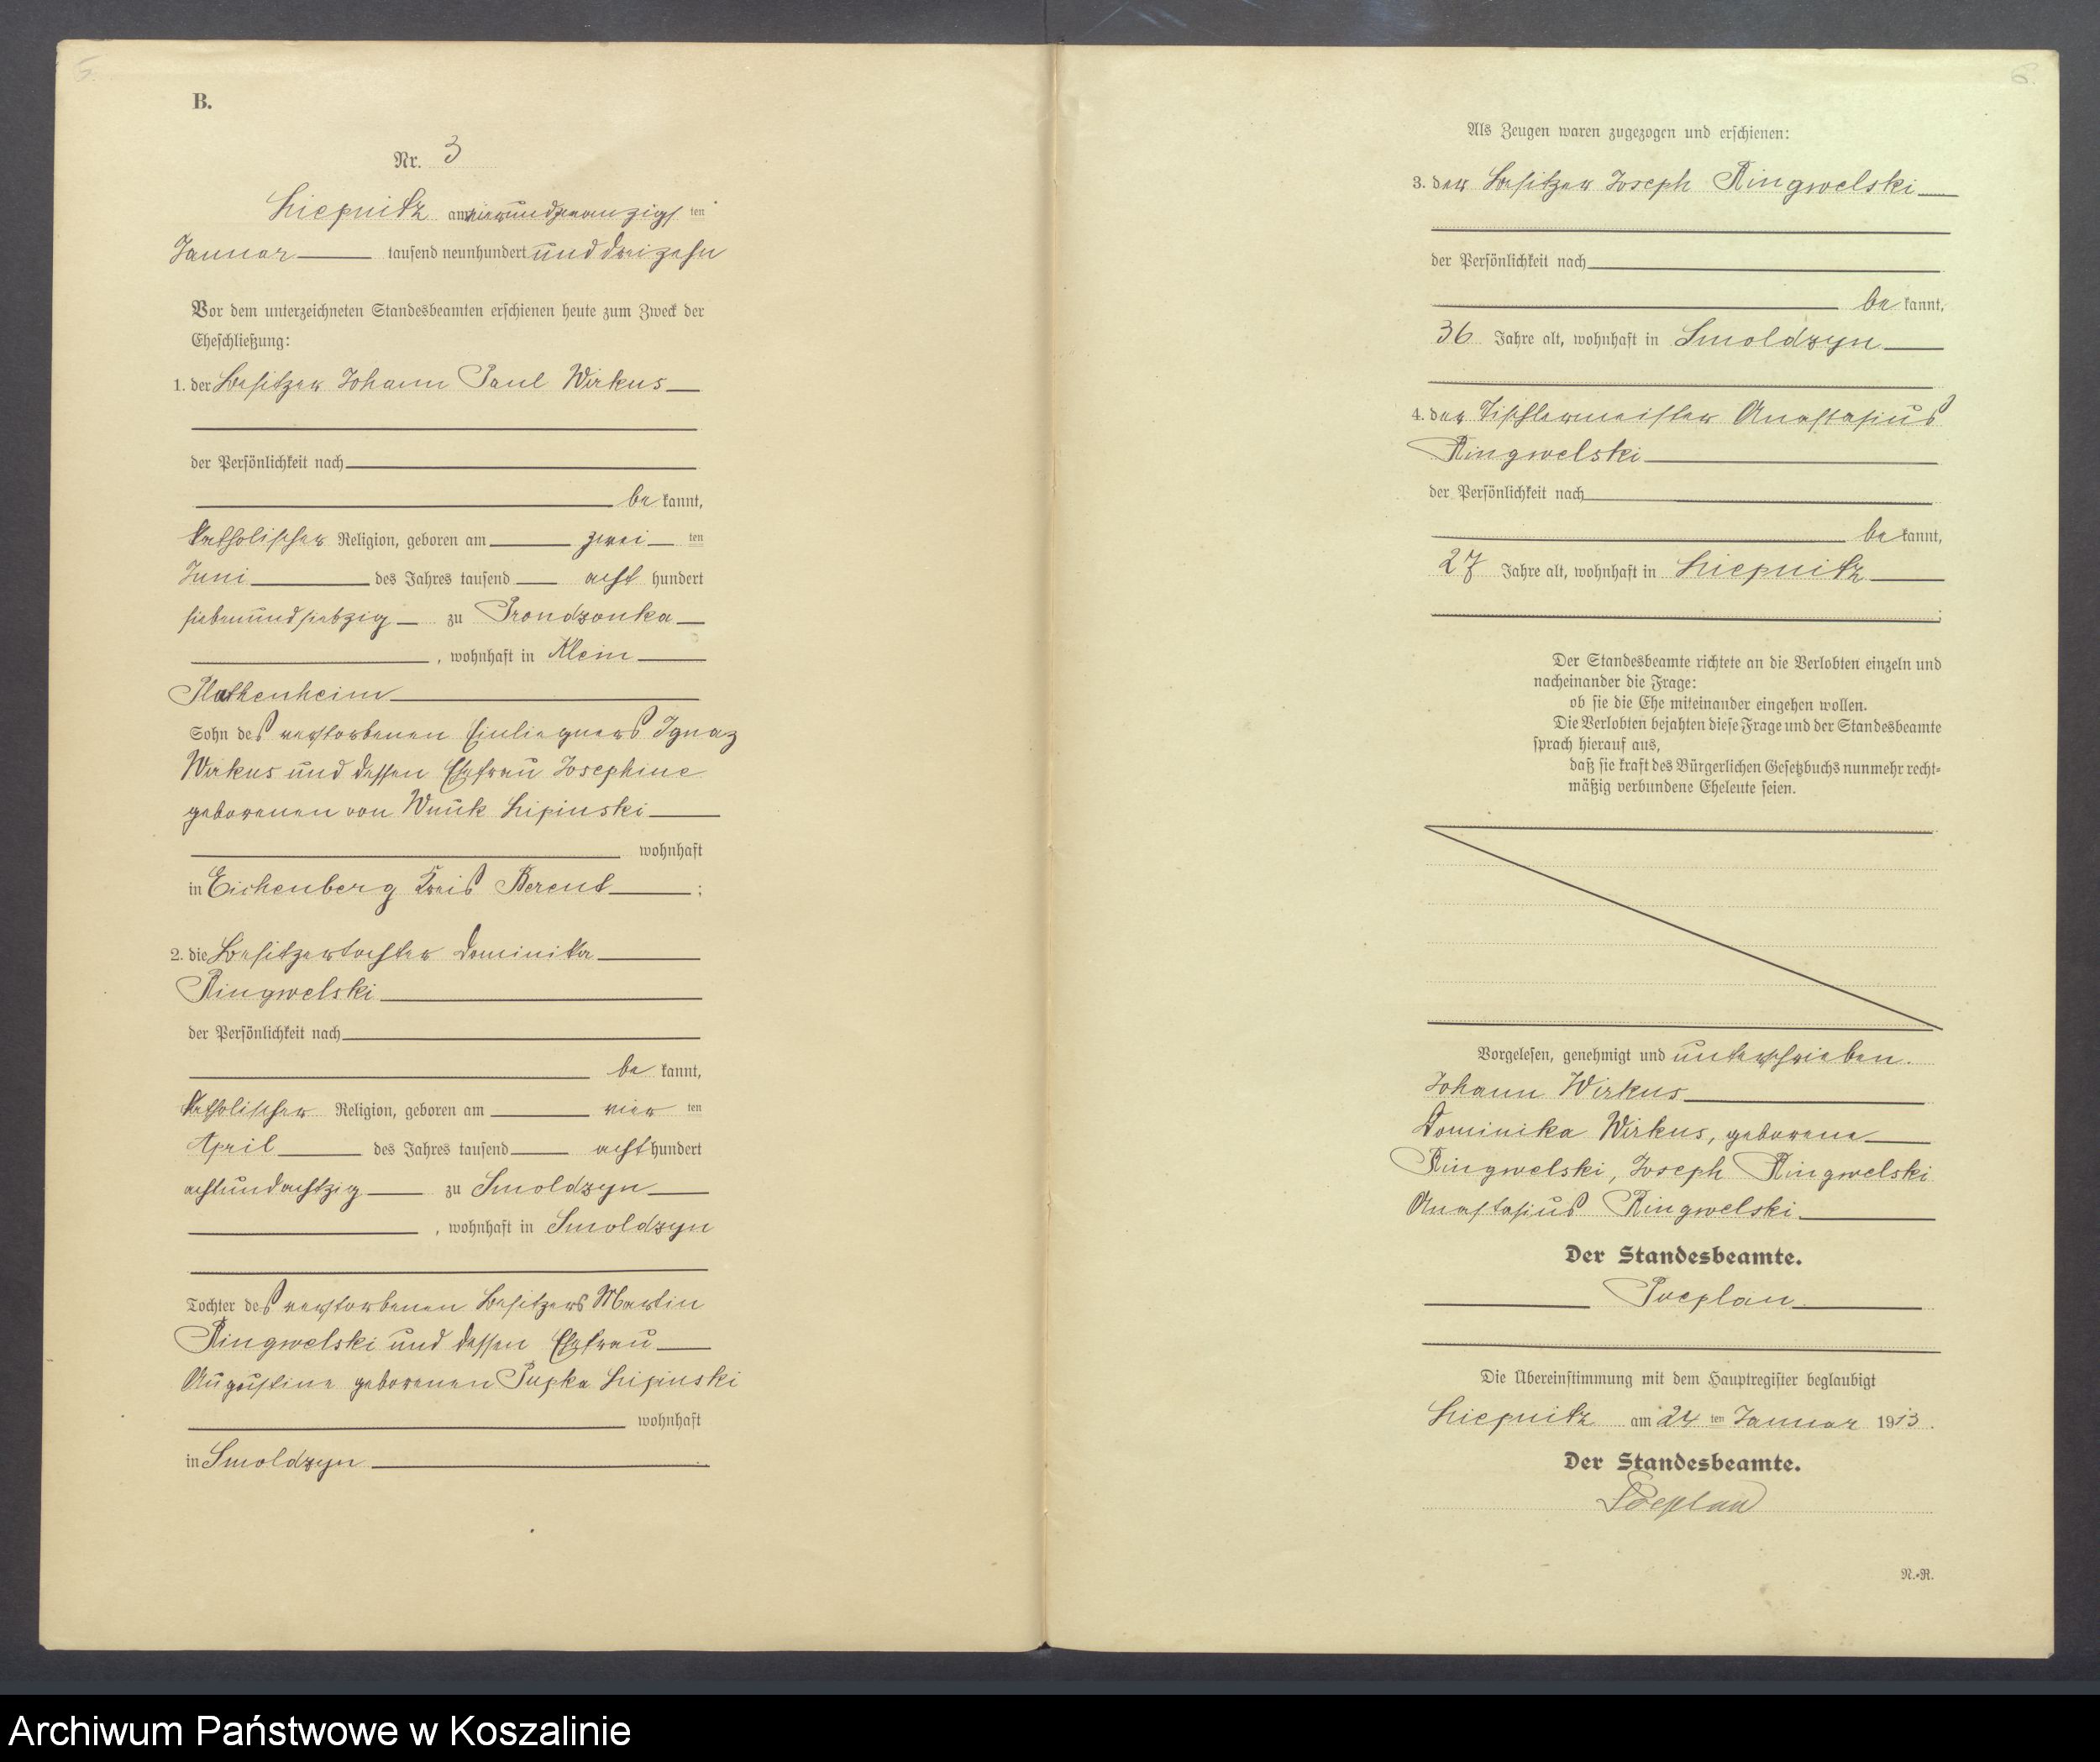 5.
B.
Nr. 3
Liepnitz am vierundzwanzigsten
Januar tausend neunhundert und dreizehn
Vor dem unterzeichneten Standesbeamten erschienen heute zum Zweck der
Eheschließung:
1. der Besitzer Johann Paul Wirkus
der Persönlichkeit nach
be kannt,
katholischer Religion, geboren am zwei ten
Juni des Jahres tausend acht hundert
siebenundsiebzig zu Prondzonka
, wohnhaft in Klein
Platenheim
Sohn des verstorbenen Einliegners Ignaz
Wirkus und dessen Ehefrau Josephine
geborenen von Wnuk Lipinski
wohnhaft
in Eichenberg Kreis Berent ;
2. die Besitzertochter Dominika
Ringwelski
der Persönlichkeit nach
be kannt,
katholischer Religion, geboren am vier ten
April des Jahres tausend acht hundert
achtundachtzig zu Smoldzyn
, wohnhaft in Smoldzyn
Tochter des verstorbenen Besitzers Martin
Ringwelski und dessen Ehefrau
Augustine geborenen Pupka Lipinski
wohnhaft
in Smoldzyn
6.
Als Zeugen waren zugezogen und erschienen:
3. der Besitzer Joseph Ringwelski
der Persönlichkeit nach
be kannt,
36 Jahre alt, wohnhaft in Smoldzyn
4. der Tischlermeister Anastasius
Ringwelski
der Persönlichkeit nach
be kannt,
27 Jahre alt, wohnhaft in Liepnitz
;
Der Standesbeamte richtete an die Verlobten einzeln und
nacheinander die Frage:
ob sie die Ehe miteinander eingehen wollen.
Die Verlobten bejahten diese Frage und der Standesbeamte
sprach hierauf aus,
daß sie kraft des Bürgerlichen Gesetzbuchs nunmehr recht-
mäßig verbundene Eheleute seien.
Vorgelesen, genehmigt und unterschrieben.
Johann Wirkus
Dominika Wirkus, geborene
Ringwelski, Joseph Ringwelski
Anastasius Ringwelski.
Der Standesbeamte.
Poeplau.
Die Übereinstimmung mit dem Hauptregister beglaubigt
Liepnitz am 24 ten Januar 1913.
Der Standesbeamte.
Poeplau
N.-R.
Archiwum Państwowe w Koszalinie